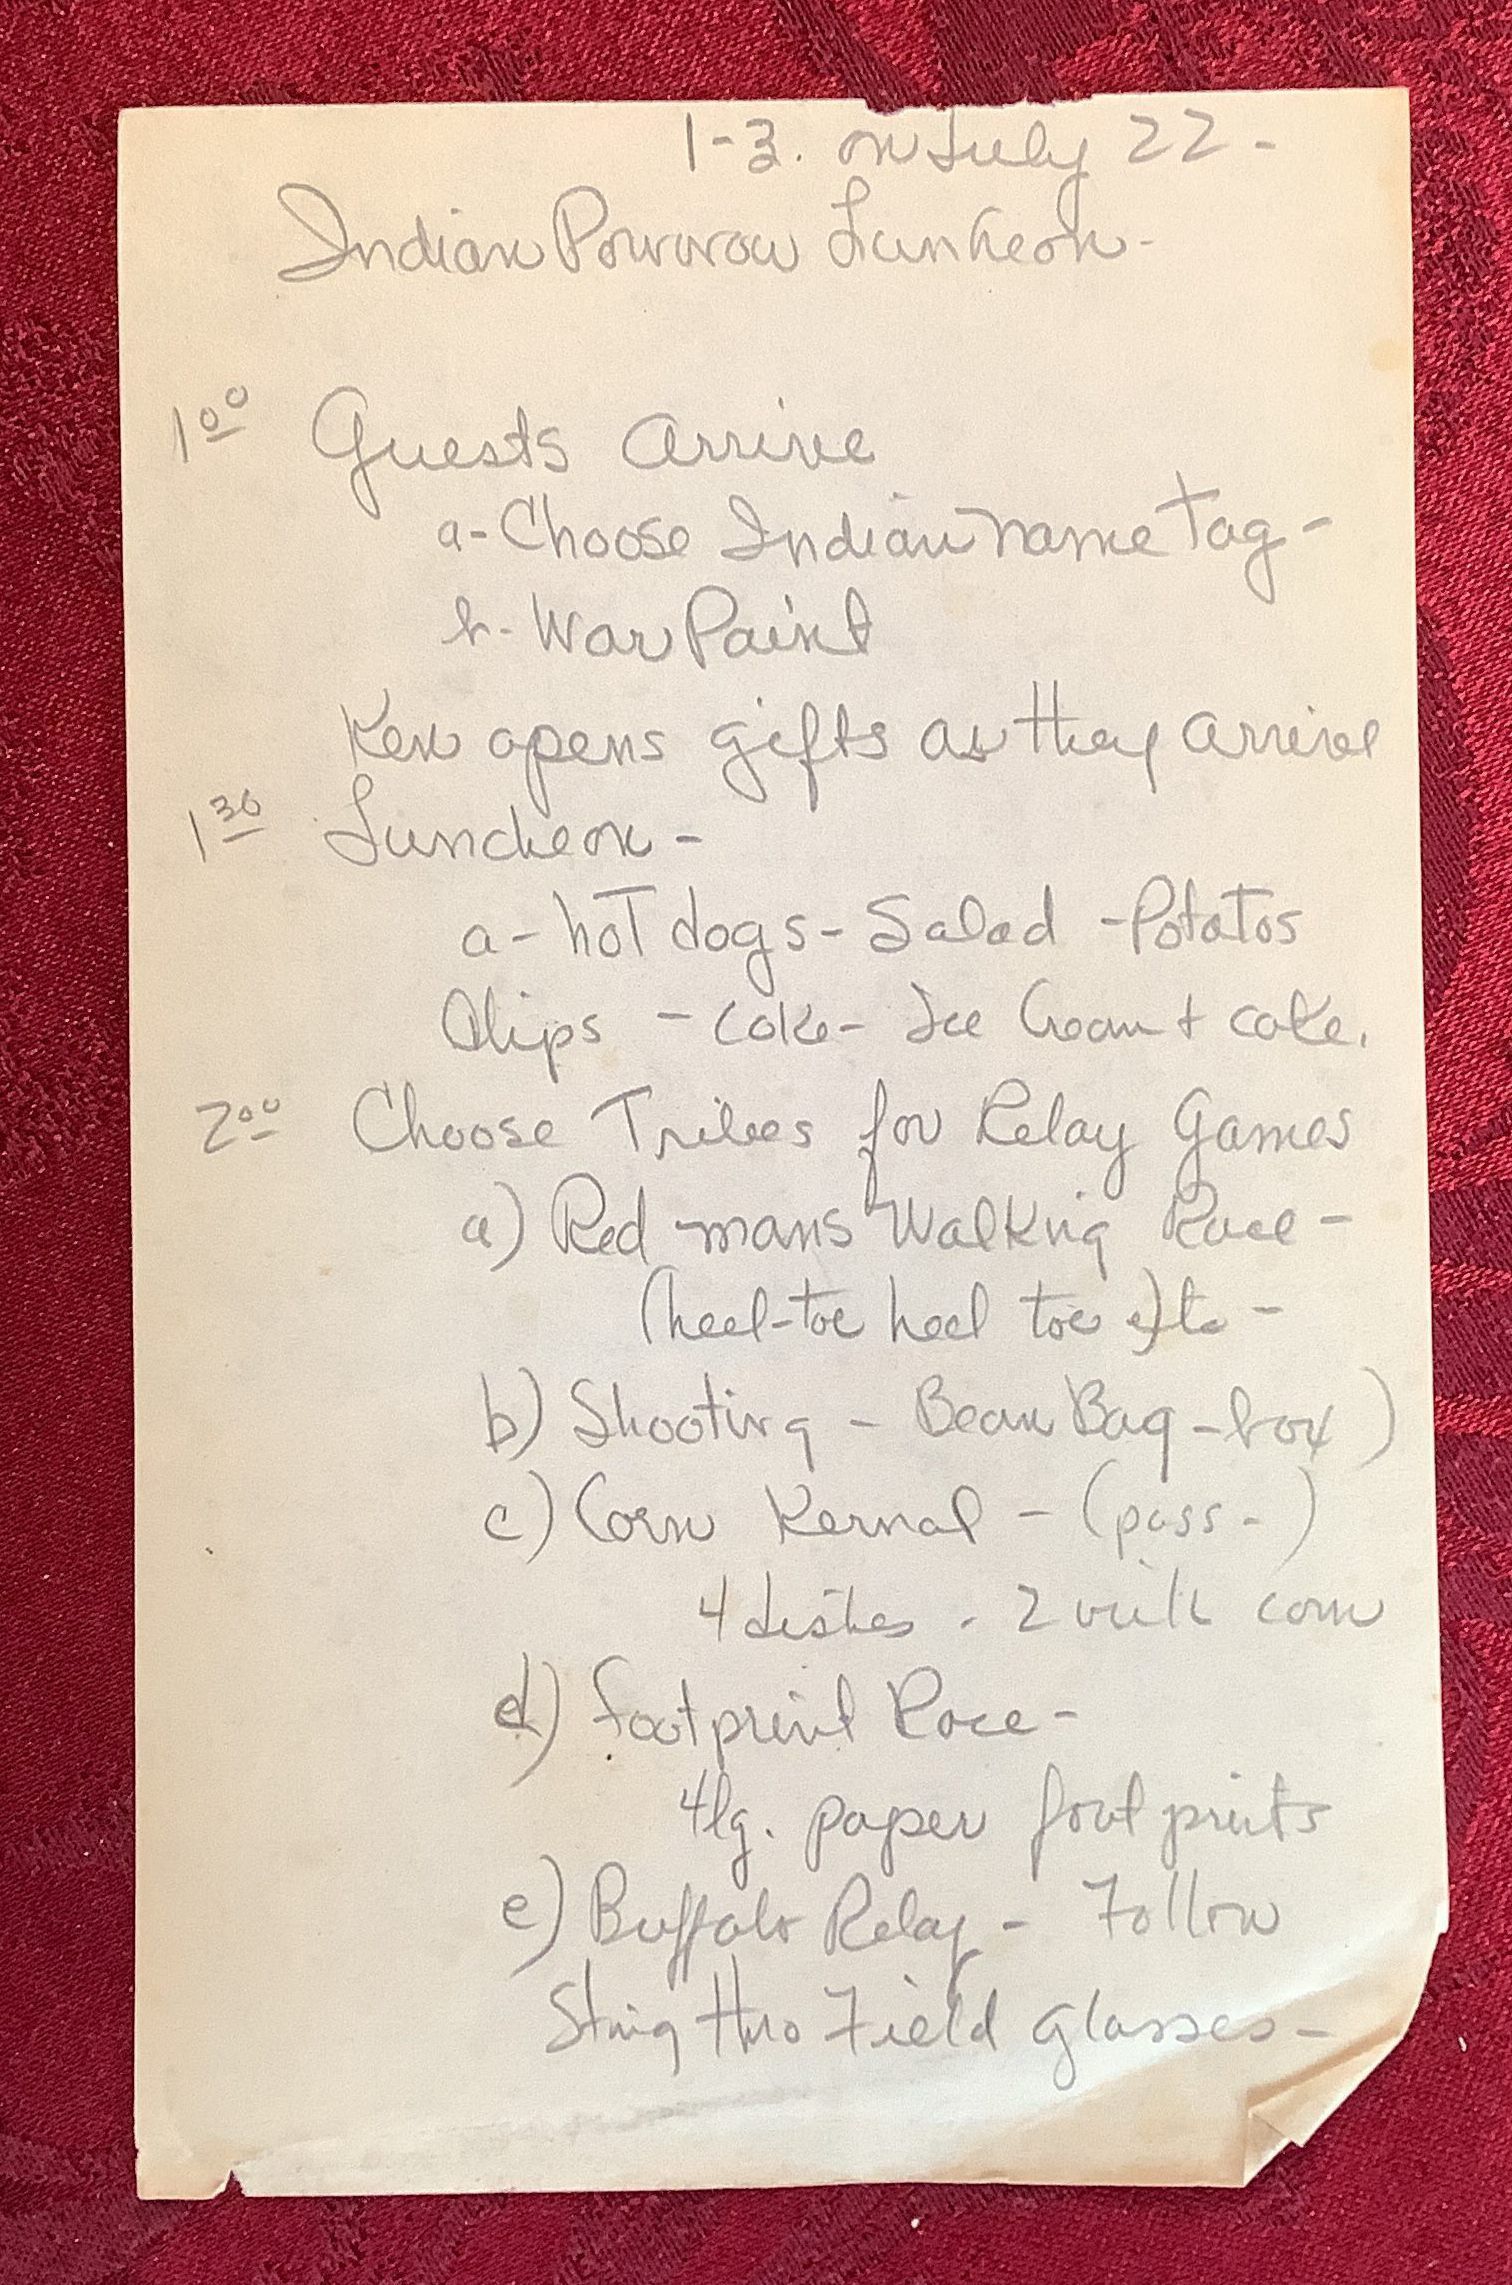 1-3. on July 22 -
Indian Powwow Luncheon -
1 00 Guests Arrive
a - Choose Indian name Tag -
b - War Paint
Ken opens gifts as they arrive
1 30 Luncheon -
a - hot dogs - Salad - Potatos
Chips - Coke - Ice Cream + cake.
2 00 Choose Tribes for Relay Games
a) Red mans Walking Race -
(heel-toe heel toe etc -
b) Shooting - Bean Bag - box)
c) Corn Kernal - (pass - )
4 dishes - 2 with corn
d) footprint Race -
4 lg. paper foot prints
e) Buffalo Relay - Follow
String thro Field Glasses -